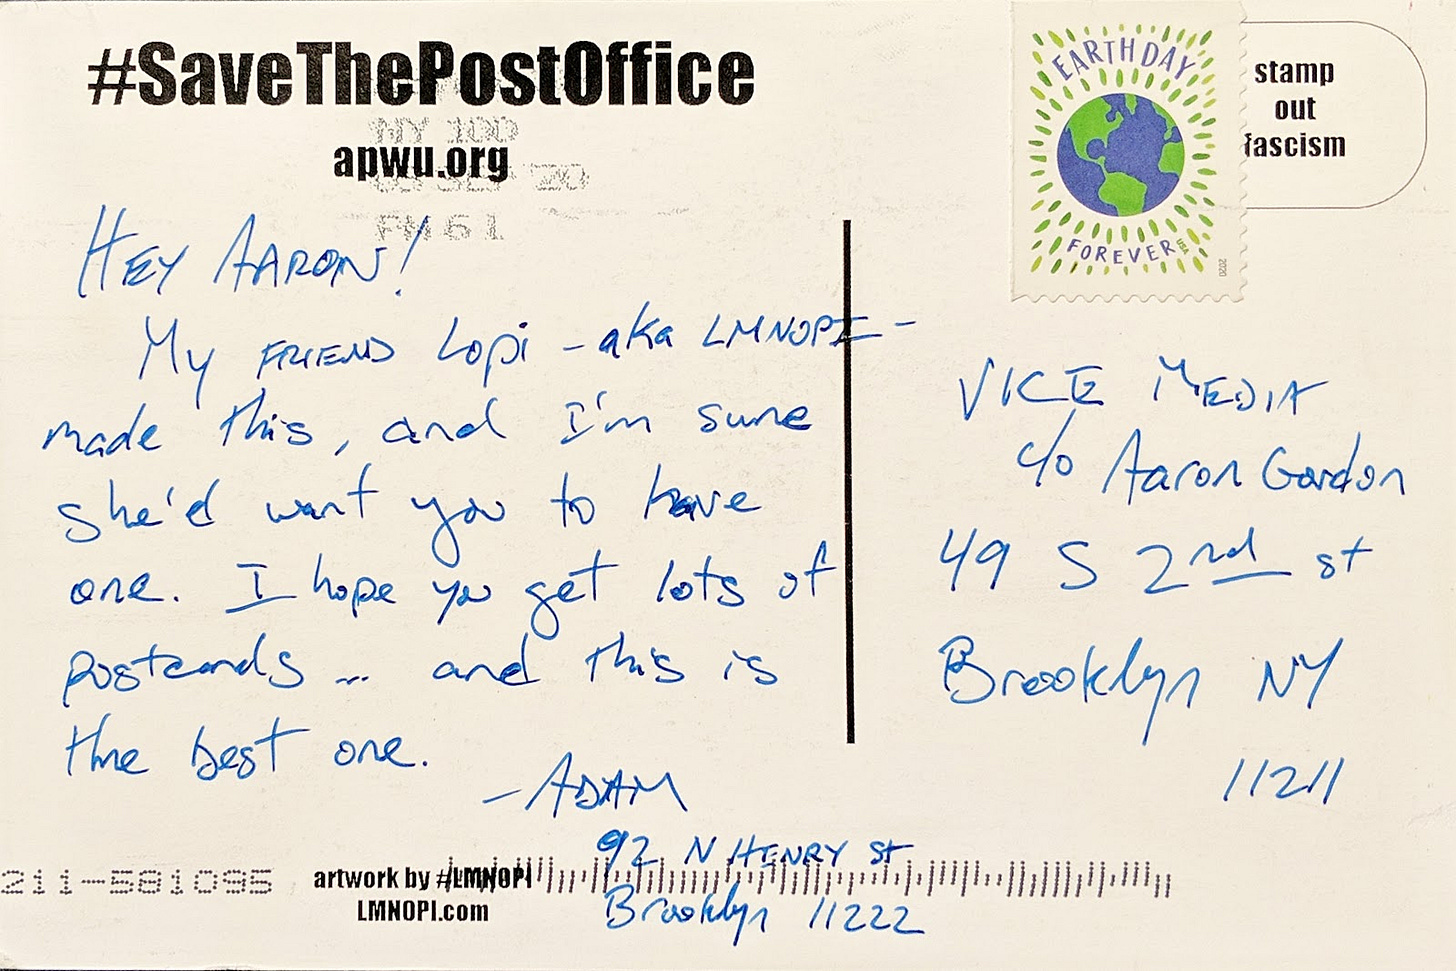 #SaveThePostOffice
apwu.org
NY 100
20
PM 61
EARTH DAY
FOREVER
2020
stamp
out
fascism
HEY AARON!
My FRIEND Lopi - aka LMNOPI -
made this, and I'm sure
she'd want you to have
one. I hope you get lots of
postcards ... and this is
the best one.
- ADAM
92 N HENRY st
Brooklyn 11222
VICE MEDIA
c/o Aaron Gordon
49 S 2nd st
Brooklyn NY
11211
211-581095
artwork by #LMNOPI
LMNOPI.com